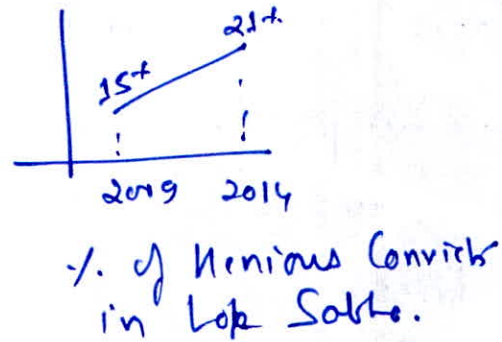 21%
15%
2009 2014
% of Henious Convicts
in Lok Sabha.